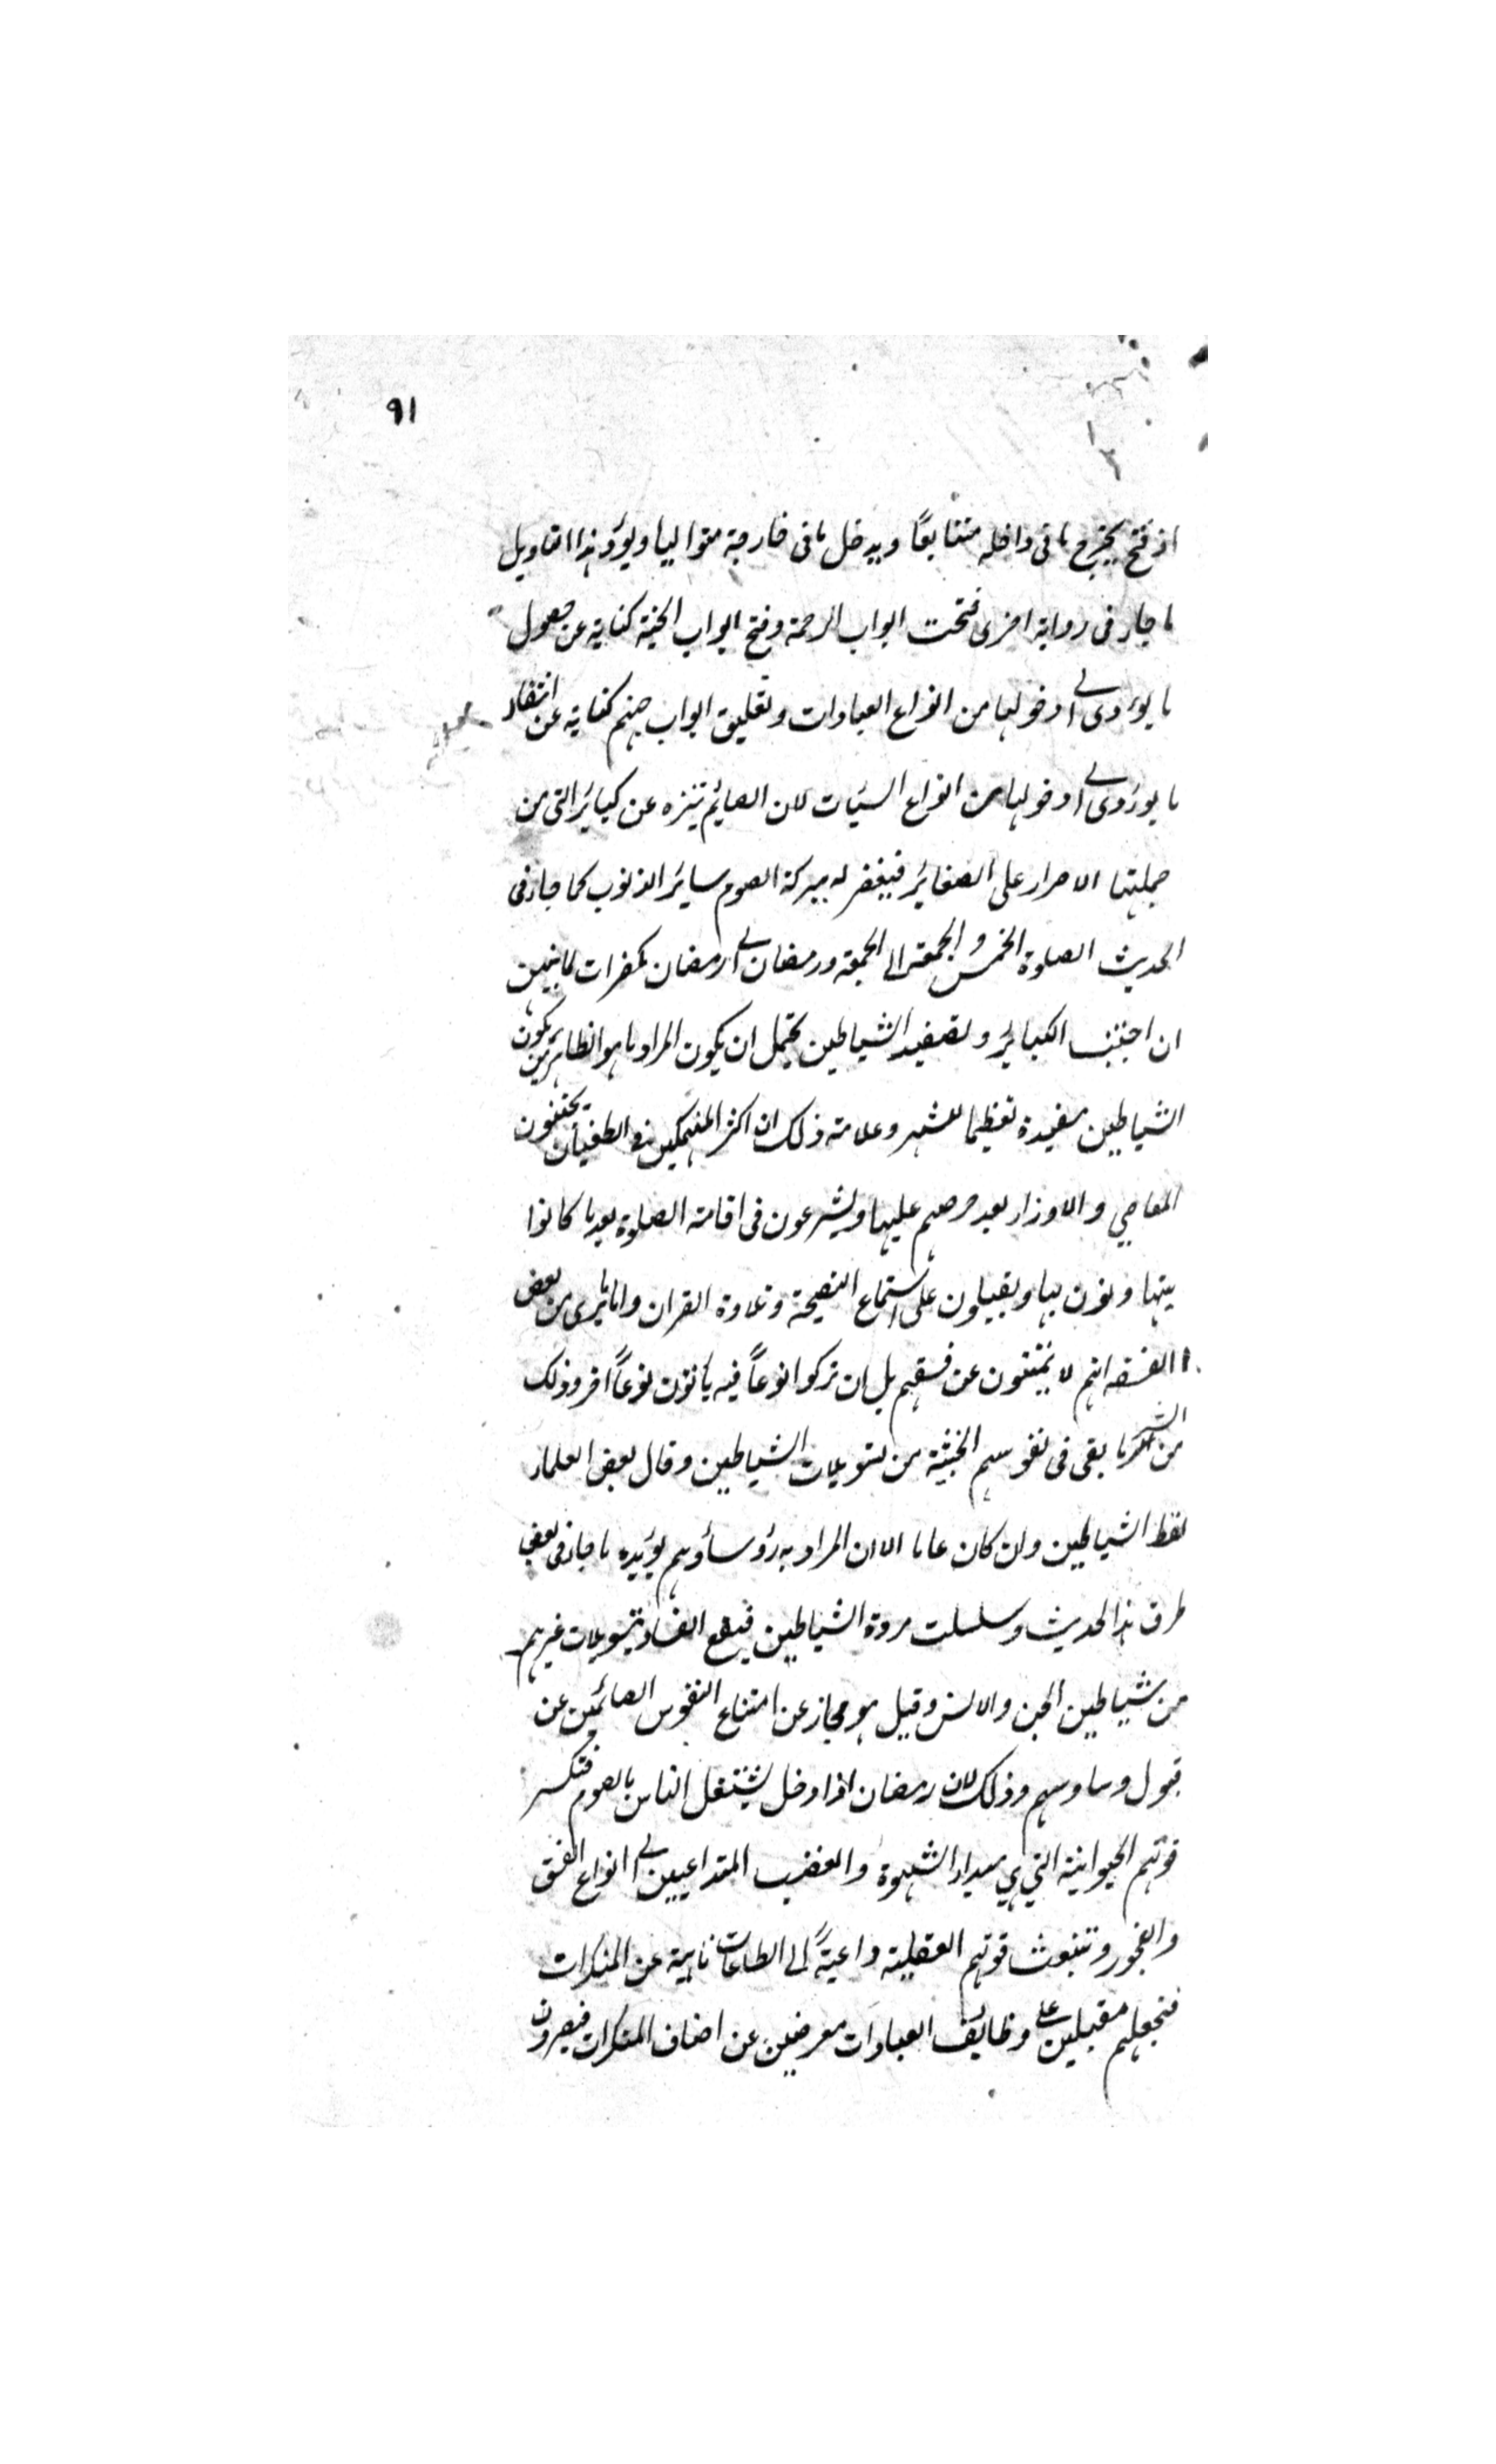 ٩١
اذ فتح يخرج ما فى داخله متتابعًا ويدخل ما فى خارجة متواليا ويؤد هذا التاويل
ما جاء فى رواية اخرى فتحت ابواب الرحمة وفتح ابواب الجنة كناية عن حصول
ما يؤدى الى دخولها من انواع العبادات وتغليق ابواب جهنم كناية عن انتفاء
ما يؤدى الى دخولها من انواع السيئات لان الصائم يتنزه عن كبائر التى من
جملتها الاصرار على الصغائر فيغفر له ببركة الصوم سائر الذنوب كما جاء فى
الحديث الصلوة الخمس و الجمعة الى الجمعة ورمضان الى رمضان مكفرات لما بينهن
ان اجتنب الكبائر وتصفيد الشياطين يحتمل ان يكون المراد ما هو الظاهر من يكون
الشياطين مصفدة تعظيما للشهر وعلامة ذلك ان اكثر المنهمكين فى الطغيان يجتنبون
المعاصي والاوزار بعد حرصهم عليها ويشرعون فى اقامة الصلوة بعد ما كانوا
يتهاونون بها ويقبلون على استماع النصيحة وتلاوة القران واما ترى من بعض
الفسقة انهم لا يمتنعون عن فسقهم بل ان تركوا نوعاً فيه يأتون نوعاً اخر وذلك
من الشر ما بقى فى نفوسهم الخبيثة من تسويلات الشياطين وقال بعض العلماء
لفظ الشياطين وان كان عاما الا ان المراد به رؤساؤهم يؤيده ما جاء فى بعض
طرق هذا الحديث وسلسلت مردة الشياطين فيقع الفساد بتسويلات غيرهم
من شياطين الجن والانس وقيل هو مجاز عن امتناع النفوس الصائمين عن
قبول وساوسهم وذلك لان رمضان اذا دخل يشتغل الناس بالصوم فتنكسر
قوتهم الحيوانية التي هي مبداء الشهوة والغضب المتداعيين الى انواع الفسق
والفجور وتنبعث قوتهم العقلية داعيةً الى الطاعات ناهية عن المنكرات
فتجعلهم مقبلين على وظائف العبادات معرضين عن اصناف المنكرات فيصرون